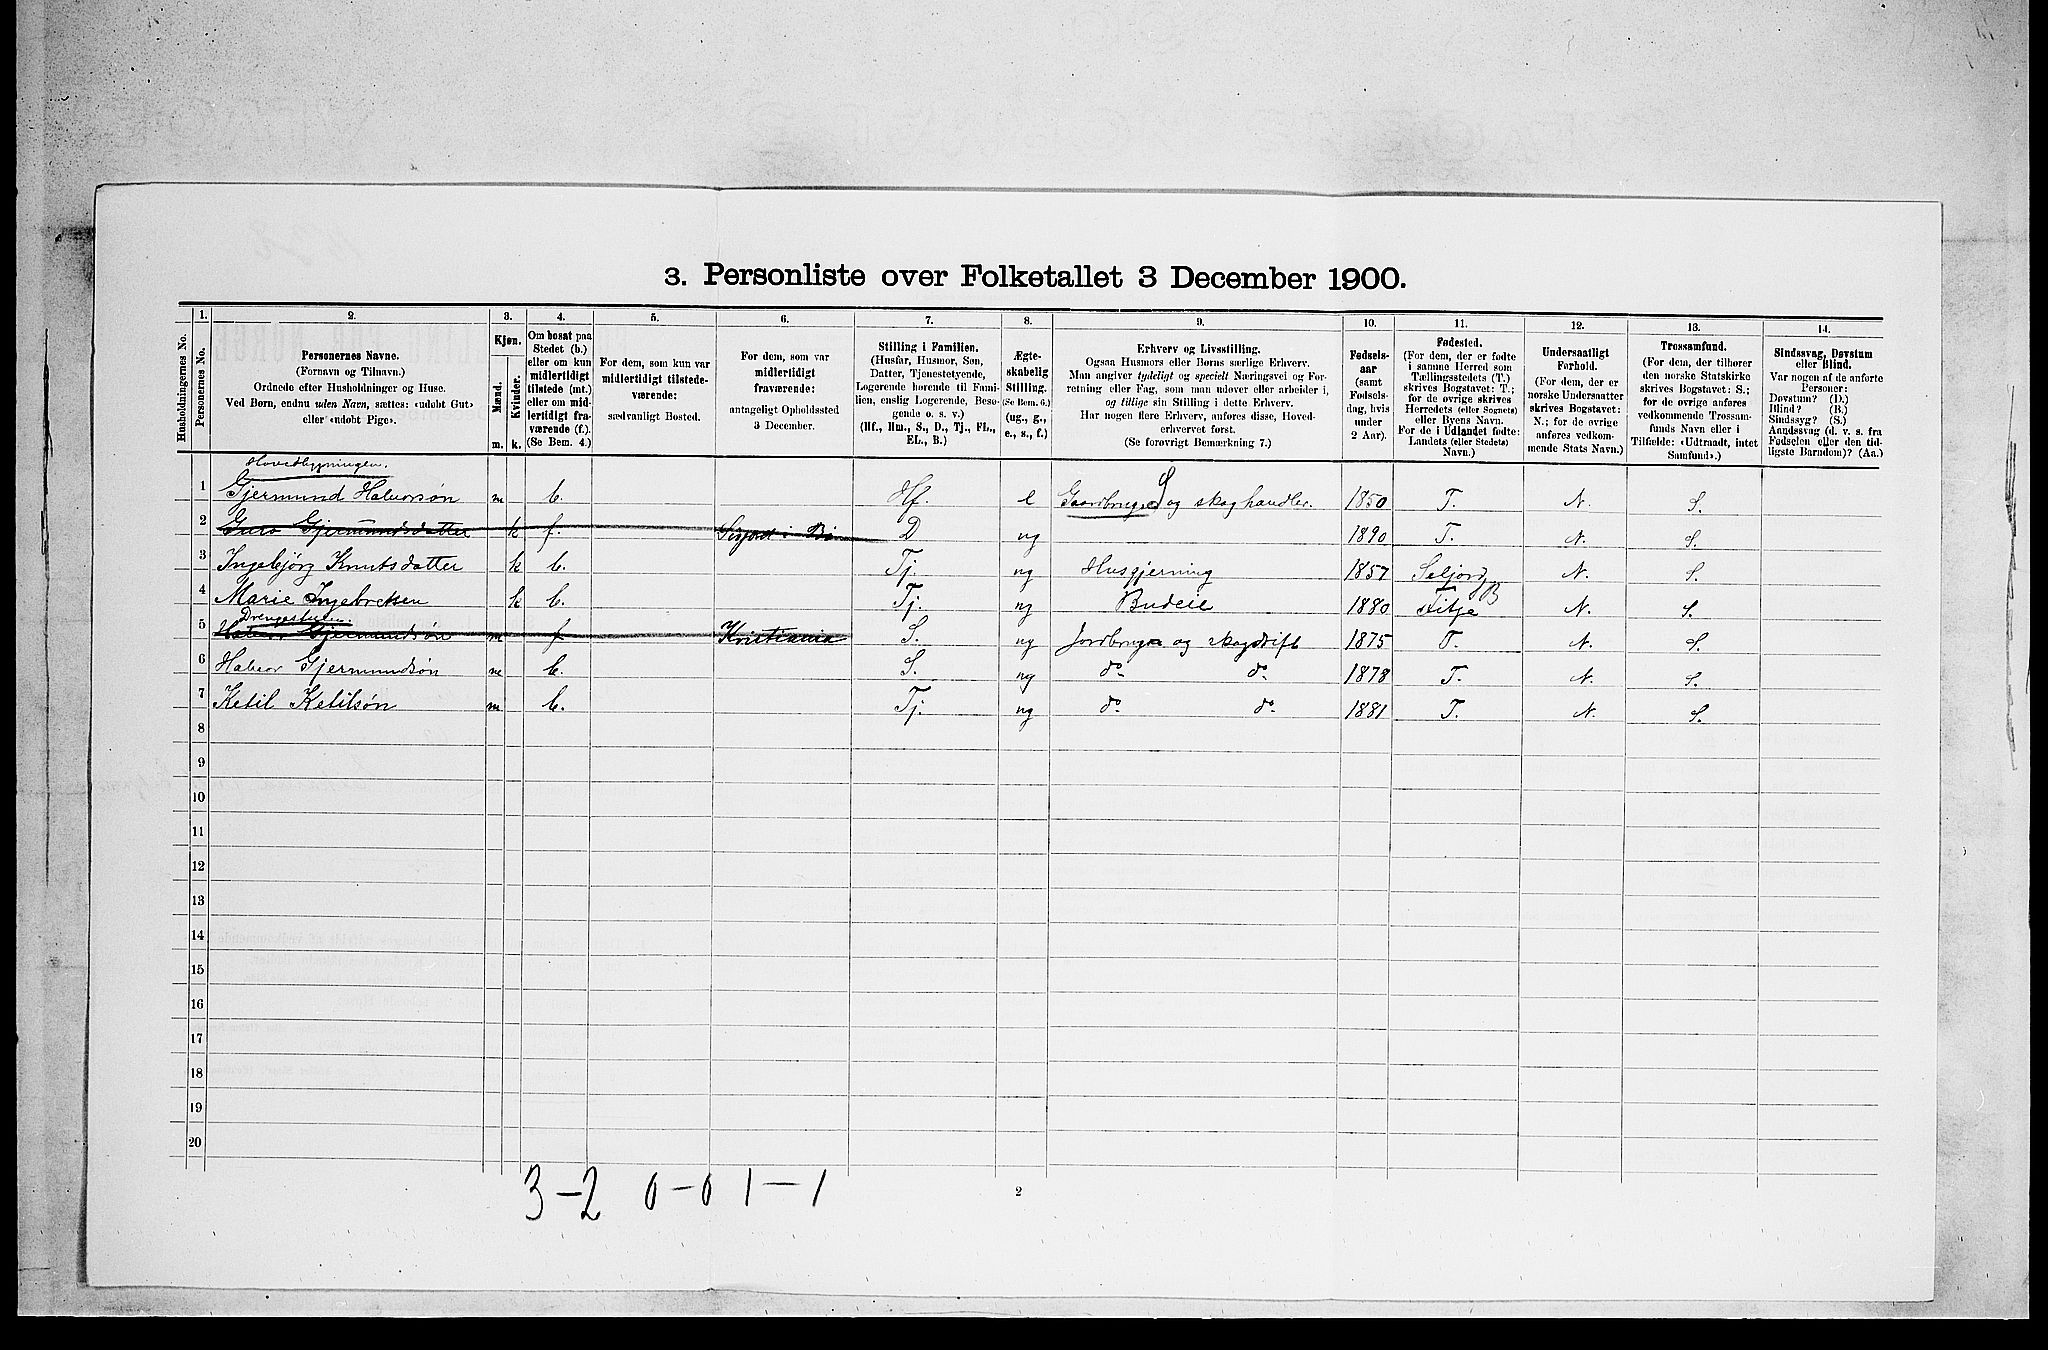 3. Personliste over Folketallet 3 December 1900.
Husholdningernes No.
1. Personernes No.
2. Personernes Navne.
(Fornavn og Tilnavn.)
Ordnede efter Husholdninger og Huse.
Ved Børn, endnu uden Navn, sættes: «udøbt Gut»
eller «udøbt Pige».
3. Kjøn.
Mænd. m.
Kvinder. k.
4. Om bosat paa
Stedet (b.)
eller om kun
midlertidigt
tilstede (mt.)
eller om mid-
lertidigt fra-
værende (f.).
(Se Bem. 4.)
5. For dem, som kun var
midlertidigt tilstede-
værende:
sædvanligt Bosted.
6. For dem, som var
midlertidigt
fraværende:
antageligt Opholdssted
3 December.
7. Stilling i Familien.
(Husfar, Husmor, Søn,
Datter, Tjenestetyende,
Logerende hørende til Fami-
lien, enslig Logerende, Besø-
gende o. s. v.)
(Hf., Hm., S., D., Tj., FL.,
EL., B.)
8. Ægte-
skabelig
Stilling.
(Se Bem. 6.)
(ug., g.,
e., s., f.)
9. Erhverv og Livsstilling.
Ogsaa Husmors eller Børns særlige Erhverv.
Man angiver tydeligt og specielt Næringsvei og For-
retning eller Fag, som man udøver eller arbeider i,
og tillige sin Stilling i dette Erhverv.
Har nogen flere Erhverv, anføres disse, Hoved-
erhvervet først.
(Se forøvrigt Bemærkning 7.)
10. Fødsels-
aar
(samt
Fødsels-
dag, hvis
under
2 Aar).
11. Fødested.
(For dem, der er fødte
i samme Herred som
Tællingsstedets (T.)
skrives Bogstavet: T.;
for de øvrige skrives
Herredets (eller Sognets)
eller Byens Navn.
For de i Udlandet fødte:
Landets (eller Stedets)
Navn.)
12. Undersaatligt
Forhold.
(For dem, der er
norske Undersaatter
skrives Bogstavet:
N.; for de øvrige
anføres vedkom-
mende Stats Navn.)
13. Trossamfund.
(For dem, der tilhører
den norske Statskirke
skrives Bogstavet: S.;
for de øvrige anføres
vedkommende Trossam-
funds Navn eller i
Tilfælde: «Udtraadt, intet
Samfund».)
14. Sindssvag, Døvstum
eller Blind.
Var nogen af de anførte
Personer:
Døvstum? (D.)
Blind? (B.)
Sindssyg? (S.)
Aandssvag (d. v. s. fra
Fødselen eller den tid-
ligste Barndom)? (Aa.)
Hovedbygningen.
1 Gjermund Halvorsøn m b. Hf. e Gaardbruger S og skoghandler. 1850 T. N. S.
2 Guro Gjermundsdatter k f. i Bø D ug 1890 T. N. S.
3 Ingebjørg Knutsdatter k b. Tj. ug Husgjerning 1857 Seljord N. S.
4 Marie Ingebretsen k b. Tj. ug Budeie 1880 Fitje B N. S.
Drengestuen.
5 Halvor Gjermundsøn m f Kristiania S. ug Jordbrug og skogdrift 1875 T. N. S.
6 Halvor Gjermundsøn m b. S. ug do do 1878 T. N. S.
7 Ketil Ketilsøn m b. Tj. ug do do 1881 T. N. S.
8
9
10
11
12
13
14
15
16
17
18
19
20
3-2 0-0 1-1
2